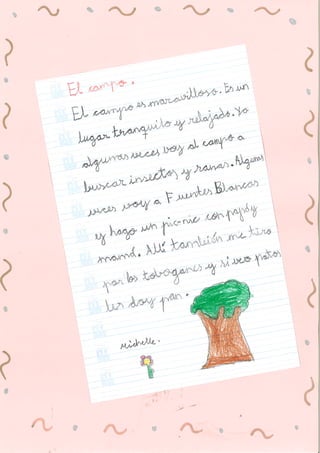 El campo.
El campo es maravilloso. Es un
lugar tranquilo y relajado. Yo
algunas veces voy al campo a
buscar insectos y ranas. Algunas
veces voy a Fuentes Blancas
y hago un pic-nic con papá y
mamá. Allí también me tiro
por los toboganes y si veo patos
les doy pan.
Michelle.